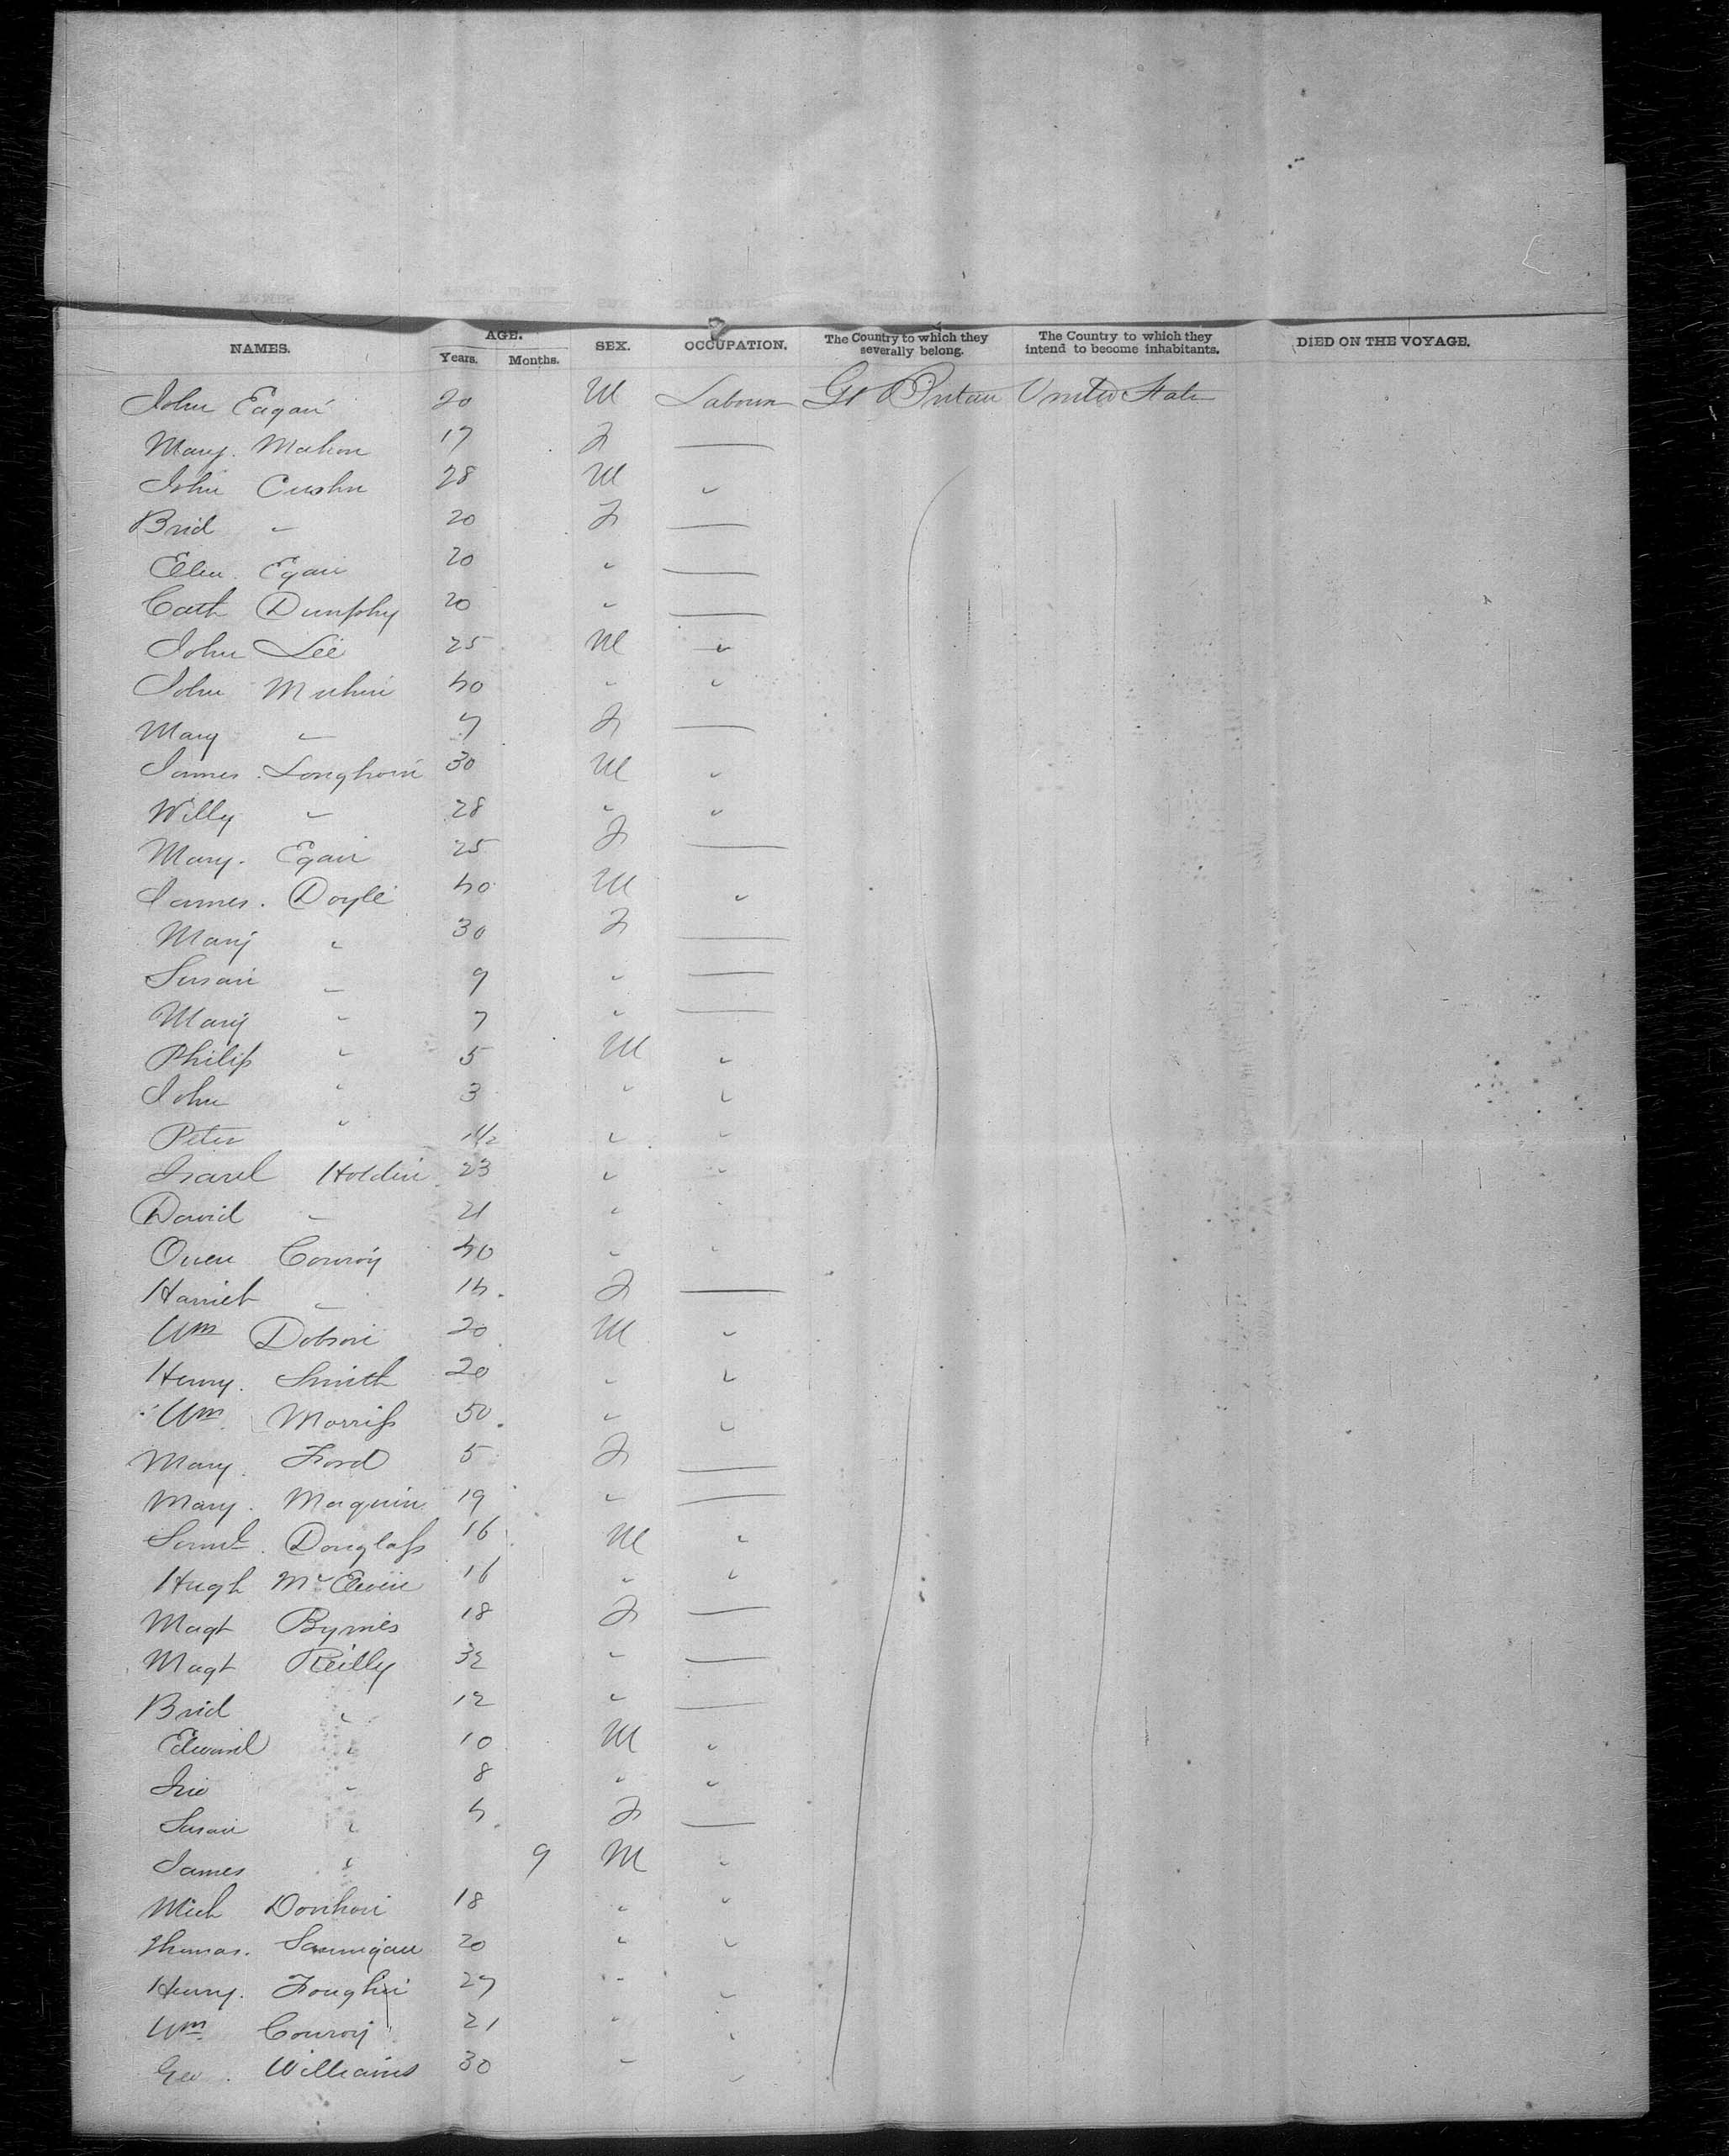 NAMES. AGE. Years. Months. SEX. OCCUPATION. The Country to which they severally belong. The Country to which they intend to become inhabitants. DIED ON THE VOYAGE.
John Eagan 20 M Labourer Gt Britain United States
Mary. Mahon 17 F —
John Cushn 28 M "
Brid " 20 F —
Ellen Egan 20 " —
Cath Dunphy 20 " —
John Lee 25 M "
John 40 " "
Mary " 7 F —
James. Longhorn 30 M "
Willy " 28 " "
Mary. Egan 25 F —
James. Doyle 40 M "
Mary " 30 F —
Susan " 9 " —
Mary " 7 " —
Philip " 5 M "
John " 3 " "
Peter " 1 1/2 " "
Isarel Holden 23 " "
David " 21 "
Owen Conroy 40 " "
Harriet " 14 F —
Wm Dobson 20 M "
Henry. Smith 20 " "
Wm Morriss 50 " "
Mary. Ford 5 F —
Mary. Maquin 19 " —
Saml. Douglass 16 M "
Hugh 16 " "
Magt Byrnes 18 F —
Magt Reilly 32 " —
Brid " 12 " —
Edward " 10 M "
Jno " 8 " "
Susan " 4 F —
James " 9 M "
Mich 18 " "
Thomas. 20 " "
Henry. 27 " "
Wm Conroy 21 " "
Geo. Williams 30 " "